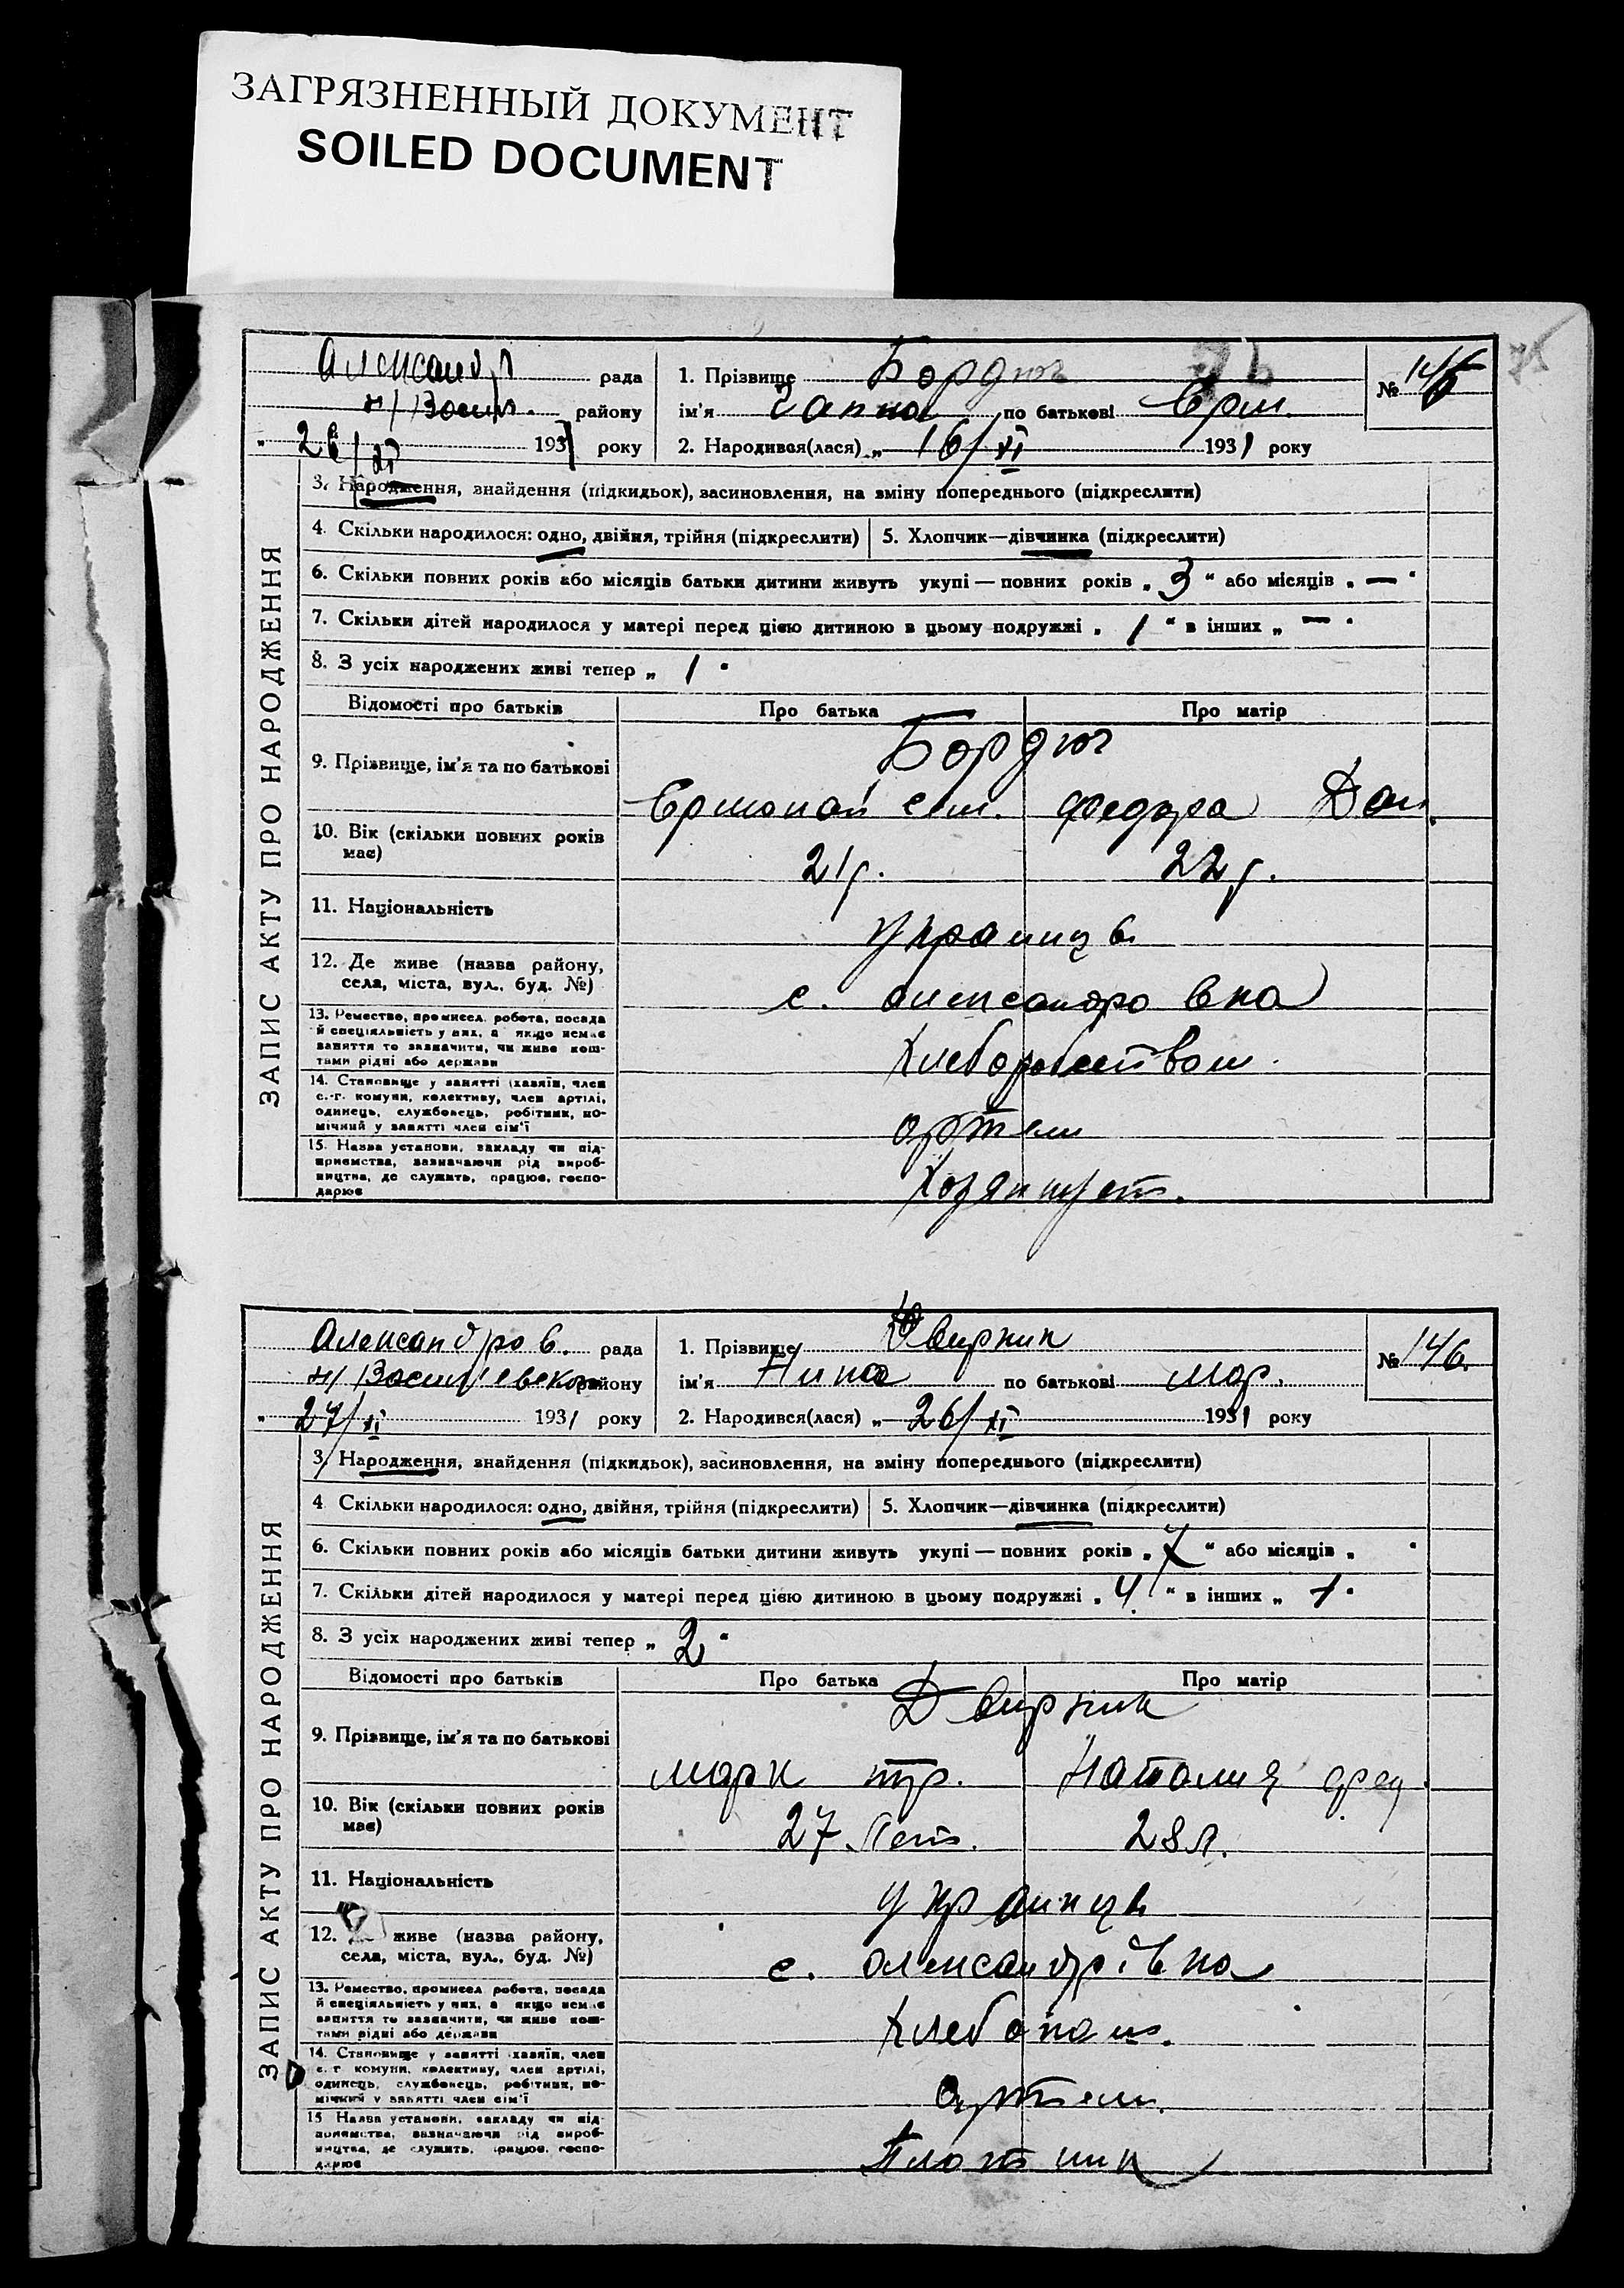 ЗАГРЯЗНЕННЫЙ ДОКУМЕНТ
SOILED DOCUMENT
ЗАПИС АКТУ ПРО НАРОДЖЕННЯ
Александр рада
н/Васил. району
" 26/XI 1931 року
1. Прізвище Бордюг
ім'я Ганна по батькові Ерм.
2. Народився(лася) „ 16/XI 1931 року
№ 145
3. Народження, знайдення (підкидьок), засиновлення, на зміну попереднього (підкреслити)
4. Скільки народилося: одно, двійня, трійня (підкреслити) 5. Хлопчик—дівчинка (підкреслити)
6. Скільки повних років або місяців батьки дитини живуть укупі — повних років „ 3 “ або місяців „ — “
7. Скільки дітей народилося у матері перед цією дитиною в цьому подружжі „ 1 “ в інших „ — “
8. З усіх народжених живі тепер „ 1 “
Відомості про батьків Про батька Про матір
9. Прізвище, ім'я та по батькові Бордюг
Ермолай Сем. Федора Дан.
10. Вік (скільки повних років має) 21 г. 22 г.
11. Національність украинцы
12. Де живе (назва району, села, міста, вул., буд. №) с. Александровка
13. Ремество, промисел, робота, посада й спеціяльність у них, а якщо немає заняття то зазначити, чи живе коштами рідні або держави Хлеборобством
14. Становище у занятті (хазяїн, член с.-г. комуни, колективу, член артілі, одинець, службовець, робітник, помічний у занятті член сім'ї артели
15. Назва установи, закладу чи підприємства, зазначаючи рід виробництва, де служить, працює, господарює
ЗАПИС АКТУ ПРО НАРОДЖЕННЯ
Александров. рада
н/Василевском району
" 27/XI 1931 року
1. Прізвище Двирник
ім'я Нина по батькові Мар.
2. Народився(лася) „ 26/XI 1931 року
№ 146.
3. Народження, знайдення (підкидьок), засиновлення, на зміну попереднього (підкреслити)
4. Скільки народилося: одно, двійня, трійня (підкреслити) 5. Хлопчик—дівчинка (підкреслити)
6. Скільки повних років або місяців батьки дитини живуть укупі — повних років „ “ або місяців „ “
7. Скільки дітей народилося у матері перед цією дитиною в цьому подружжі „ 4 “ в інших „ “
8. З усіх народжених живі тепер „ 2 “
Відомості про батьків Про батька Про матір
9. Прізвище, ім'я та по батькові Двирник
Марк Тр. Наталия Фед.
10. Вік (скільки повних років має) 27 лет. 28 л.
11. Національність украинцы
12. живе (назва району, села, міста, вул., буд. №) с. Олександрівка
13. Ремество, промисел, робота, посада й спеціяльність у них, а якщо немає заняття то зазначити, чи живе коштами рідні або держави Хлебопаш.
14. Становище у занятті (хазяїн, член с.-г. комуни, колективу, член артілі, одинець, службовець, робітник, помічний у занятті член сім'ї Артели.
15 Назва установи, закладу чи підприємства, зазначаючи рід виробництва, де служить, працює, господарює Плотник